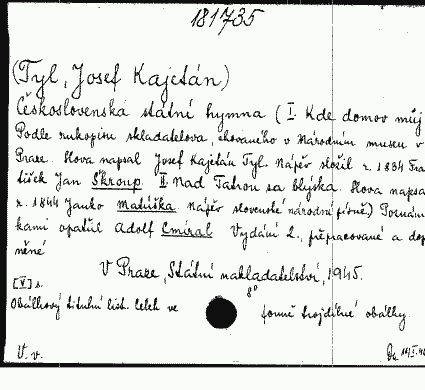 181735
(Tyl, Josef Kajetán)
Československá státní hymna (I. Kde domov můj
Podle rukopisu skladatelova, chovaného v Národním museu v
Praze. Slova napsal Josef Kajetán Tyl. Nápěv složil r. 1834 Fra
tišek Jan Škroup. II. Nad Tatrou sa blýska. Slova napsa
r. 1844 Janko Matúška. Nápěv slovenské národní písně.) Poznám
kami opatřil Adolf Cmíral Vydání 2., přepracované a dop
něné
V Praze, Státní nakladatelství, 1945.
[V] s. 8°
Obálkový titulní list. Celek ve formě trojdílné obálky.
V. v.